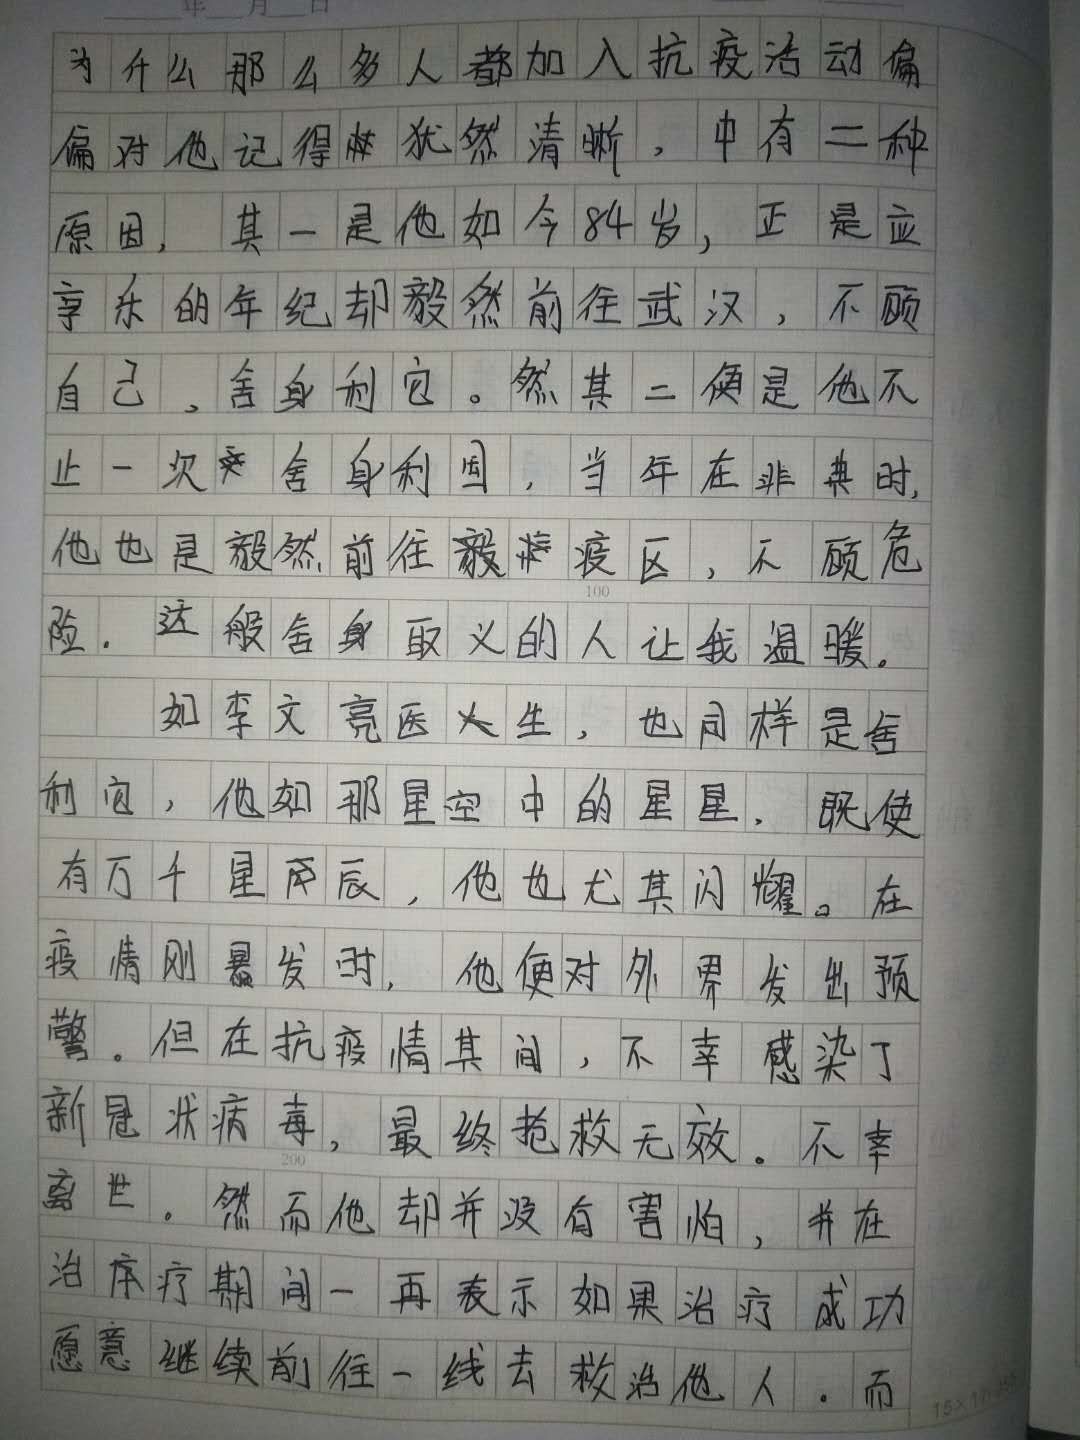 年 月 日
为什么那么多人都加入抗疫活动偏
偏对他记得犹然清晰，中有二种
原因，其一是他如今84岁，正是应
享乐的年纪却毅然前往武汉，不顾
自己、舍身利它。然其二便是他不
止一次舍身利国，当年在非典时，
他也是毅然前往疫区，不顾危
100
险．这般舍身取义的人让我温暖。
如李文亮医生，也同样是舍
利它，他如那星空中的星星．既使
有万千星辰，他也尤其闪耀。在
疫情刚暴发时，他便对外界发出预
警。但在抗疫情其间，不幸感染了
新冠状病毒，最终抢救无效。不幸
200
离世。然而他却并没有害怕，并在
治疗期间一再表示如果治疗成功
愿意继续前往一线去救治他人．而